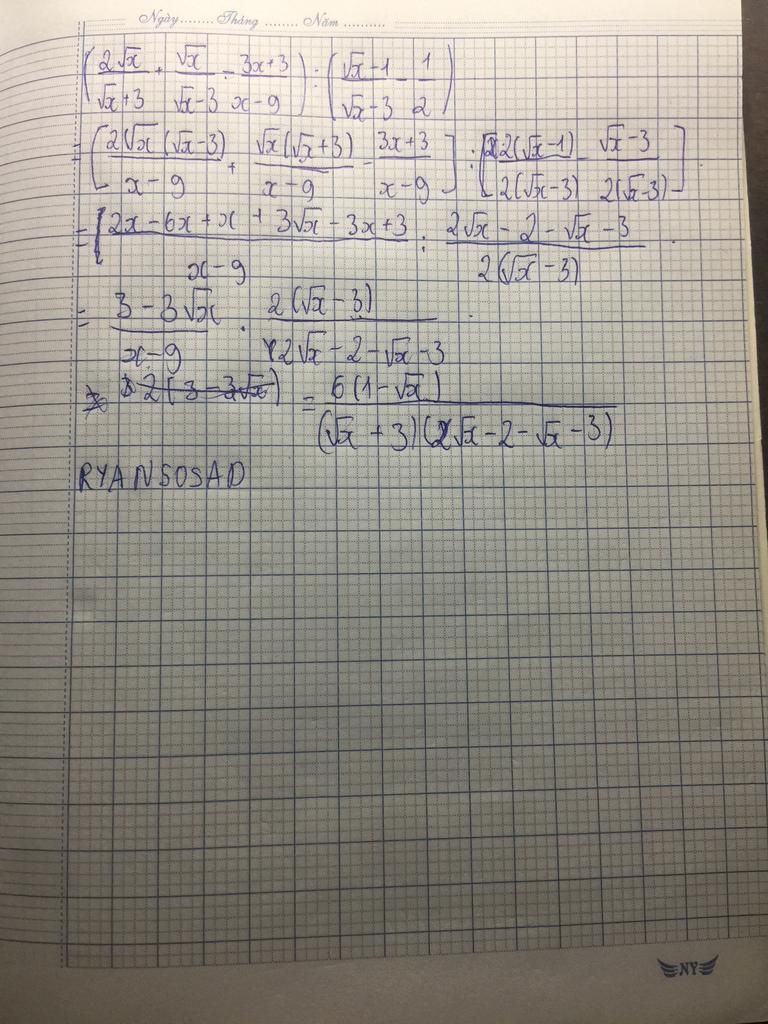 Ngày........ Tháng ........ Năm ..........
(2√x/(√x+3) + √x/(√x-3) - (3x+3)/(x-9)) : ((√x-1)/(√x-3) - 1/2)
= [2(√x(√x-3)/(x-9) + √x(√x+3)/(x-9) - (3x+3)/(x-9)] : [2(√x-1)/2(√x-3) - (√x-3)/2(√x-3)]
= [(2x-6x+x+3√x-3x+3)/(x-9) : (2√x-2-√x-3)/2(√x-3)
= (3-3√x)/(x-9) . 2(√x-3)/(2√x-2-√x-3)
2(3-3√x) = 6(1-√x)/(√x+3)(2√x-2-√x-3)
RYANSOSAD
NY